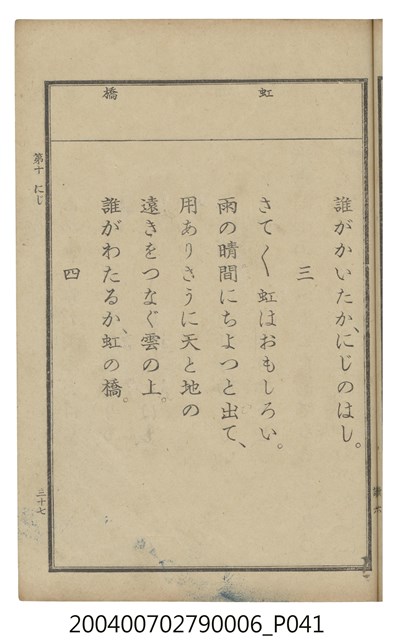 虹
橋
誰がかいたか、にじのはし。
三
さて〱虹はおもしろい。
雨の晴間にちよつと出て、
用ありさうに天と地の
遠きをつなぐ雲の上。
誰がわたるか、虹の橋。
四
第十 にじ
三十七
200400702790006_P041